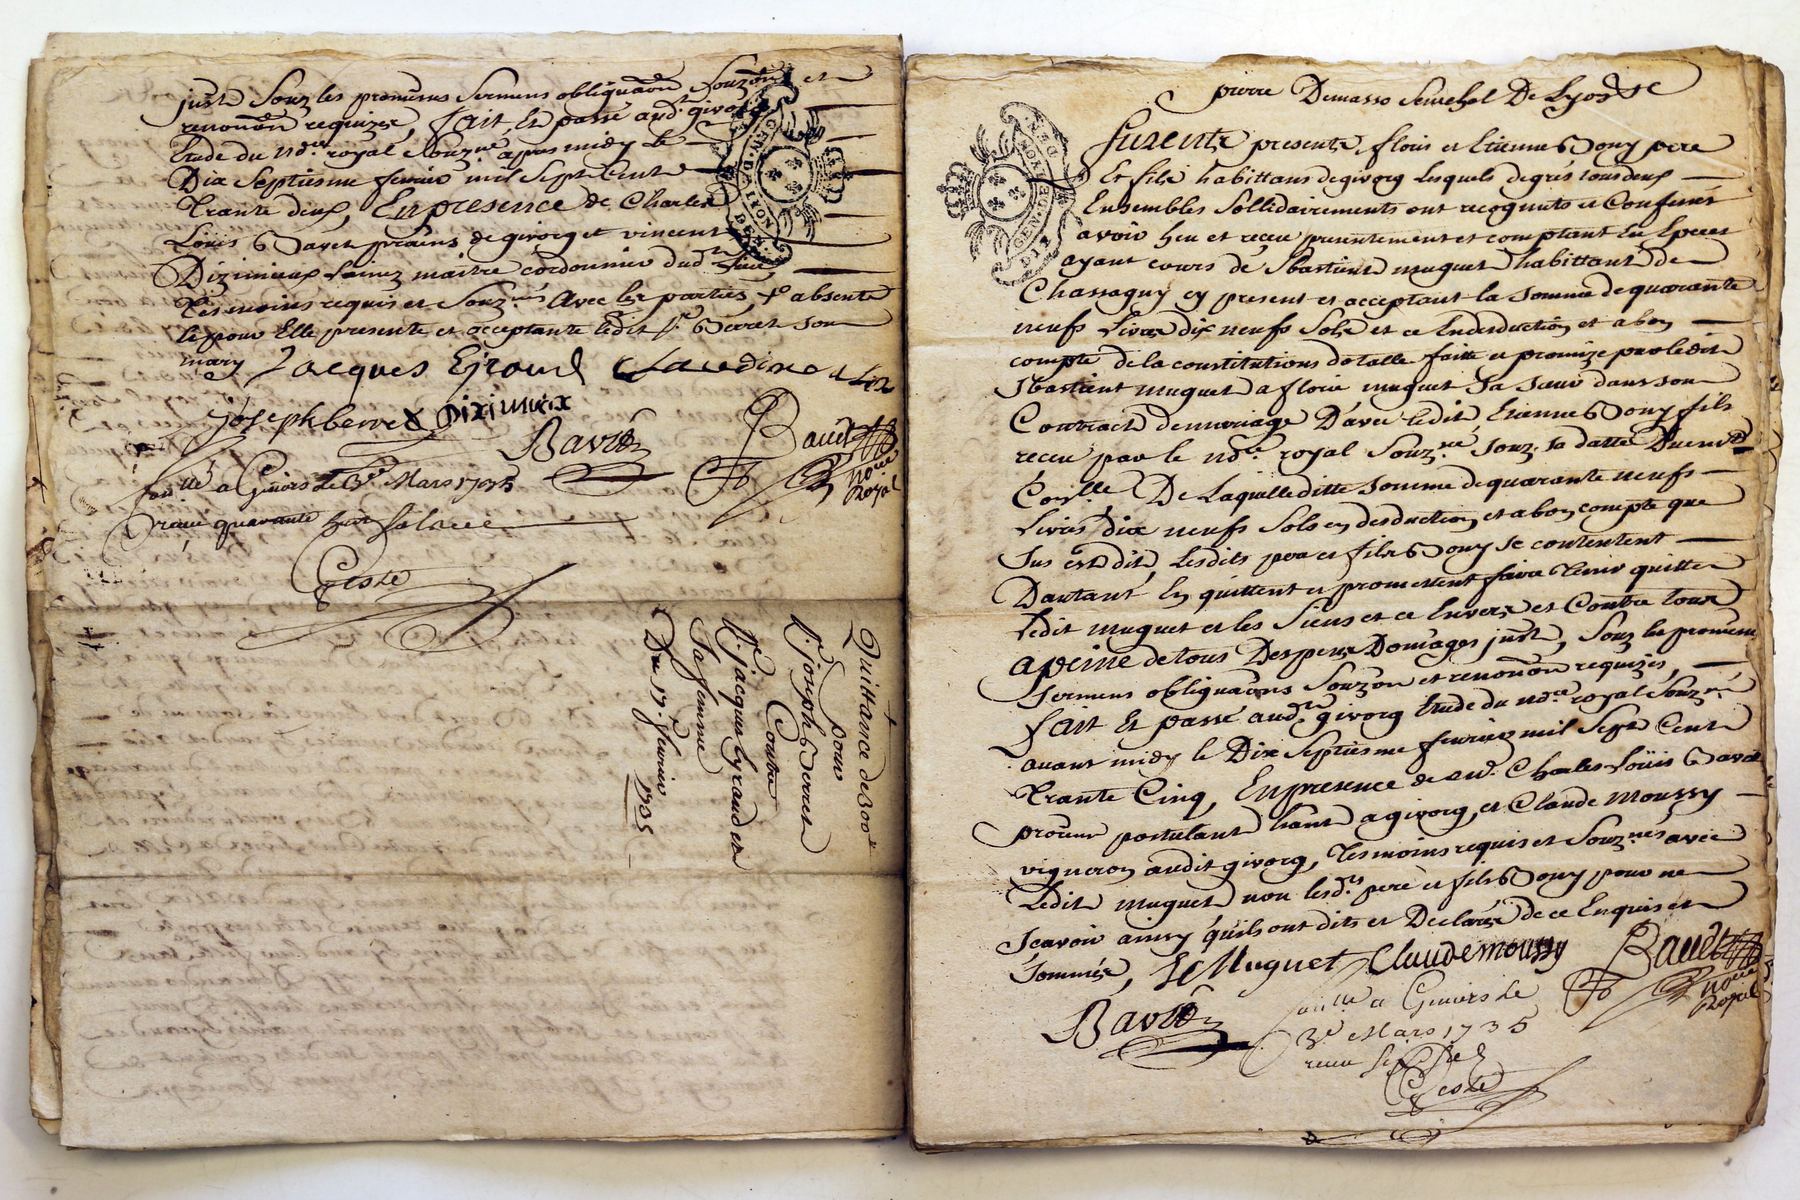 just Souz les promesses Sermens obliguaõn Souzõn et
renonõn requizes, fait, Et passé aud.t givorg
Etude du nd.re royal Souz.né apres midy le
Dix Septiesme fevrier mil Sept Cent
Trante deux, En presence de Charles
Loüis Bavet de givorg et vincent
Dizimieux maitre cordonnier dud.t lieu,
Tesmoins requis et Souz.nés Avec les parties, absente
le pour Elle presente et acceptante ledit Berret son
mary
Jacques Eiraud Claudine
joseph berret Diximieux
Bavet
Baudt
No.re
Royal
a Givors le 3.e Mars 1735
receu quarante
Geste
Quittance de 300
pour
S.r joseph Berret
Contre
S.r jacques Eyraud et
Sa femme
Du 17.e fevrier 1735
pierre Demasso Senechal De Lyon
furent presents, floris et Etienne Bony pere
Et fils habittans de givorg Lesquels de gres tous deux
Ensembles Sollidairements ont recognuts et Confessés
avoir heu et receu presentement et comptant En Especes
ayant cours de Sbastient muguet habittant de
Chassagny cy present et acceptant la Somme de quarante
neufs Livres dix neufs Sols et ce En desduction et a bon
compte de la constitutions dotalle faitte et promize par ledit
Sbastient muguet a florie muguet Sa Sœur dans son
Contract de mariage D'avec ledit Etienne Bony fils
receu par le nd.re royal Souz.né Souz Sa datte
De Laquelle ditte Somme de quarante neufs
Livres dix neufs Sols en desduction, et a bon compte que
Sus est dit, Lesdits pere et fils Bony Se contentent
Dautant En quittent et promettent faire Tenir quitte
Ledit muguet et les Siens et ce Envers et Contre tous
a peine de tous Despens Domages just, Souz les promesses
Sermens obliguaõns Souzõn et renonõn requizes,
fait Et passé aud.t givorg Etude du nd.re royal Souz.né
avant midy le Dix Septiesme fevrier mil Sept Cent
Trante Cinq, En presence de Charles Loüis Bavet
postulant a givorg, et Claude Moussy
vigneron audit givorg, Tesmoins requis et Souz.nés avec
Ledit muguet non lesd.ts pere et fils Bony pour ne
Scavoir ainsy qu'ils ont dits et Declarés de ce Enquis et
Sommés,
Muguet Claude moussy
Baudt
No.re
Royal
Bavet
a Givors le
3.e Mars 1735
receu
Geste